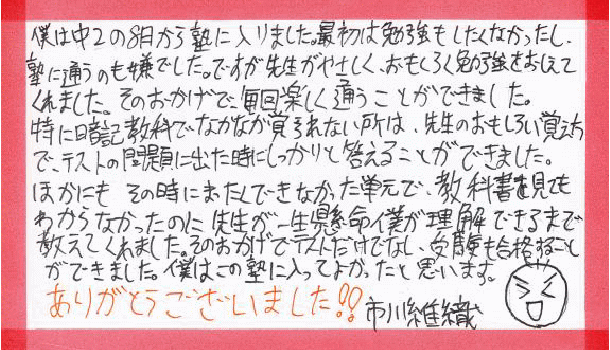 僕は中2の8月から塾に入りました。最初は勉強もしたくなかったし、
塾に通うのも嫌でした。ですが先生がやさしく、おもしろく勉強をおしえて
くれました。そのおかげで、毎回楽しく通うことができました。
特に暗記教科でなかなか覚られない所は、先生のおもしろい覚え方
で、テストの問題に出た時にしっかりと答えることができました。
ほかにも その時にまったくできなかった単元で、教科書を見ても
わからなかったのに先生が一生懸命僕が理解できるまで
教えてくれました。そのおかげでテストだけでなく、受験も合格すること
ができました。僕はこの塾に入ってよかったと思います。
ありがとうございました!!
市川維織